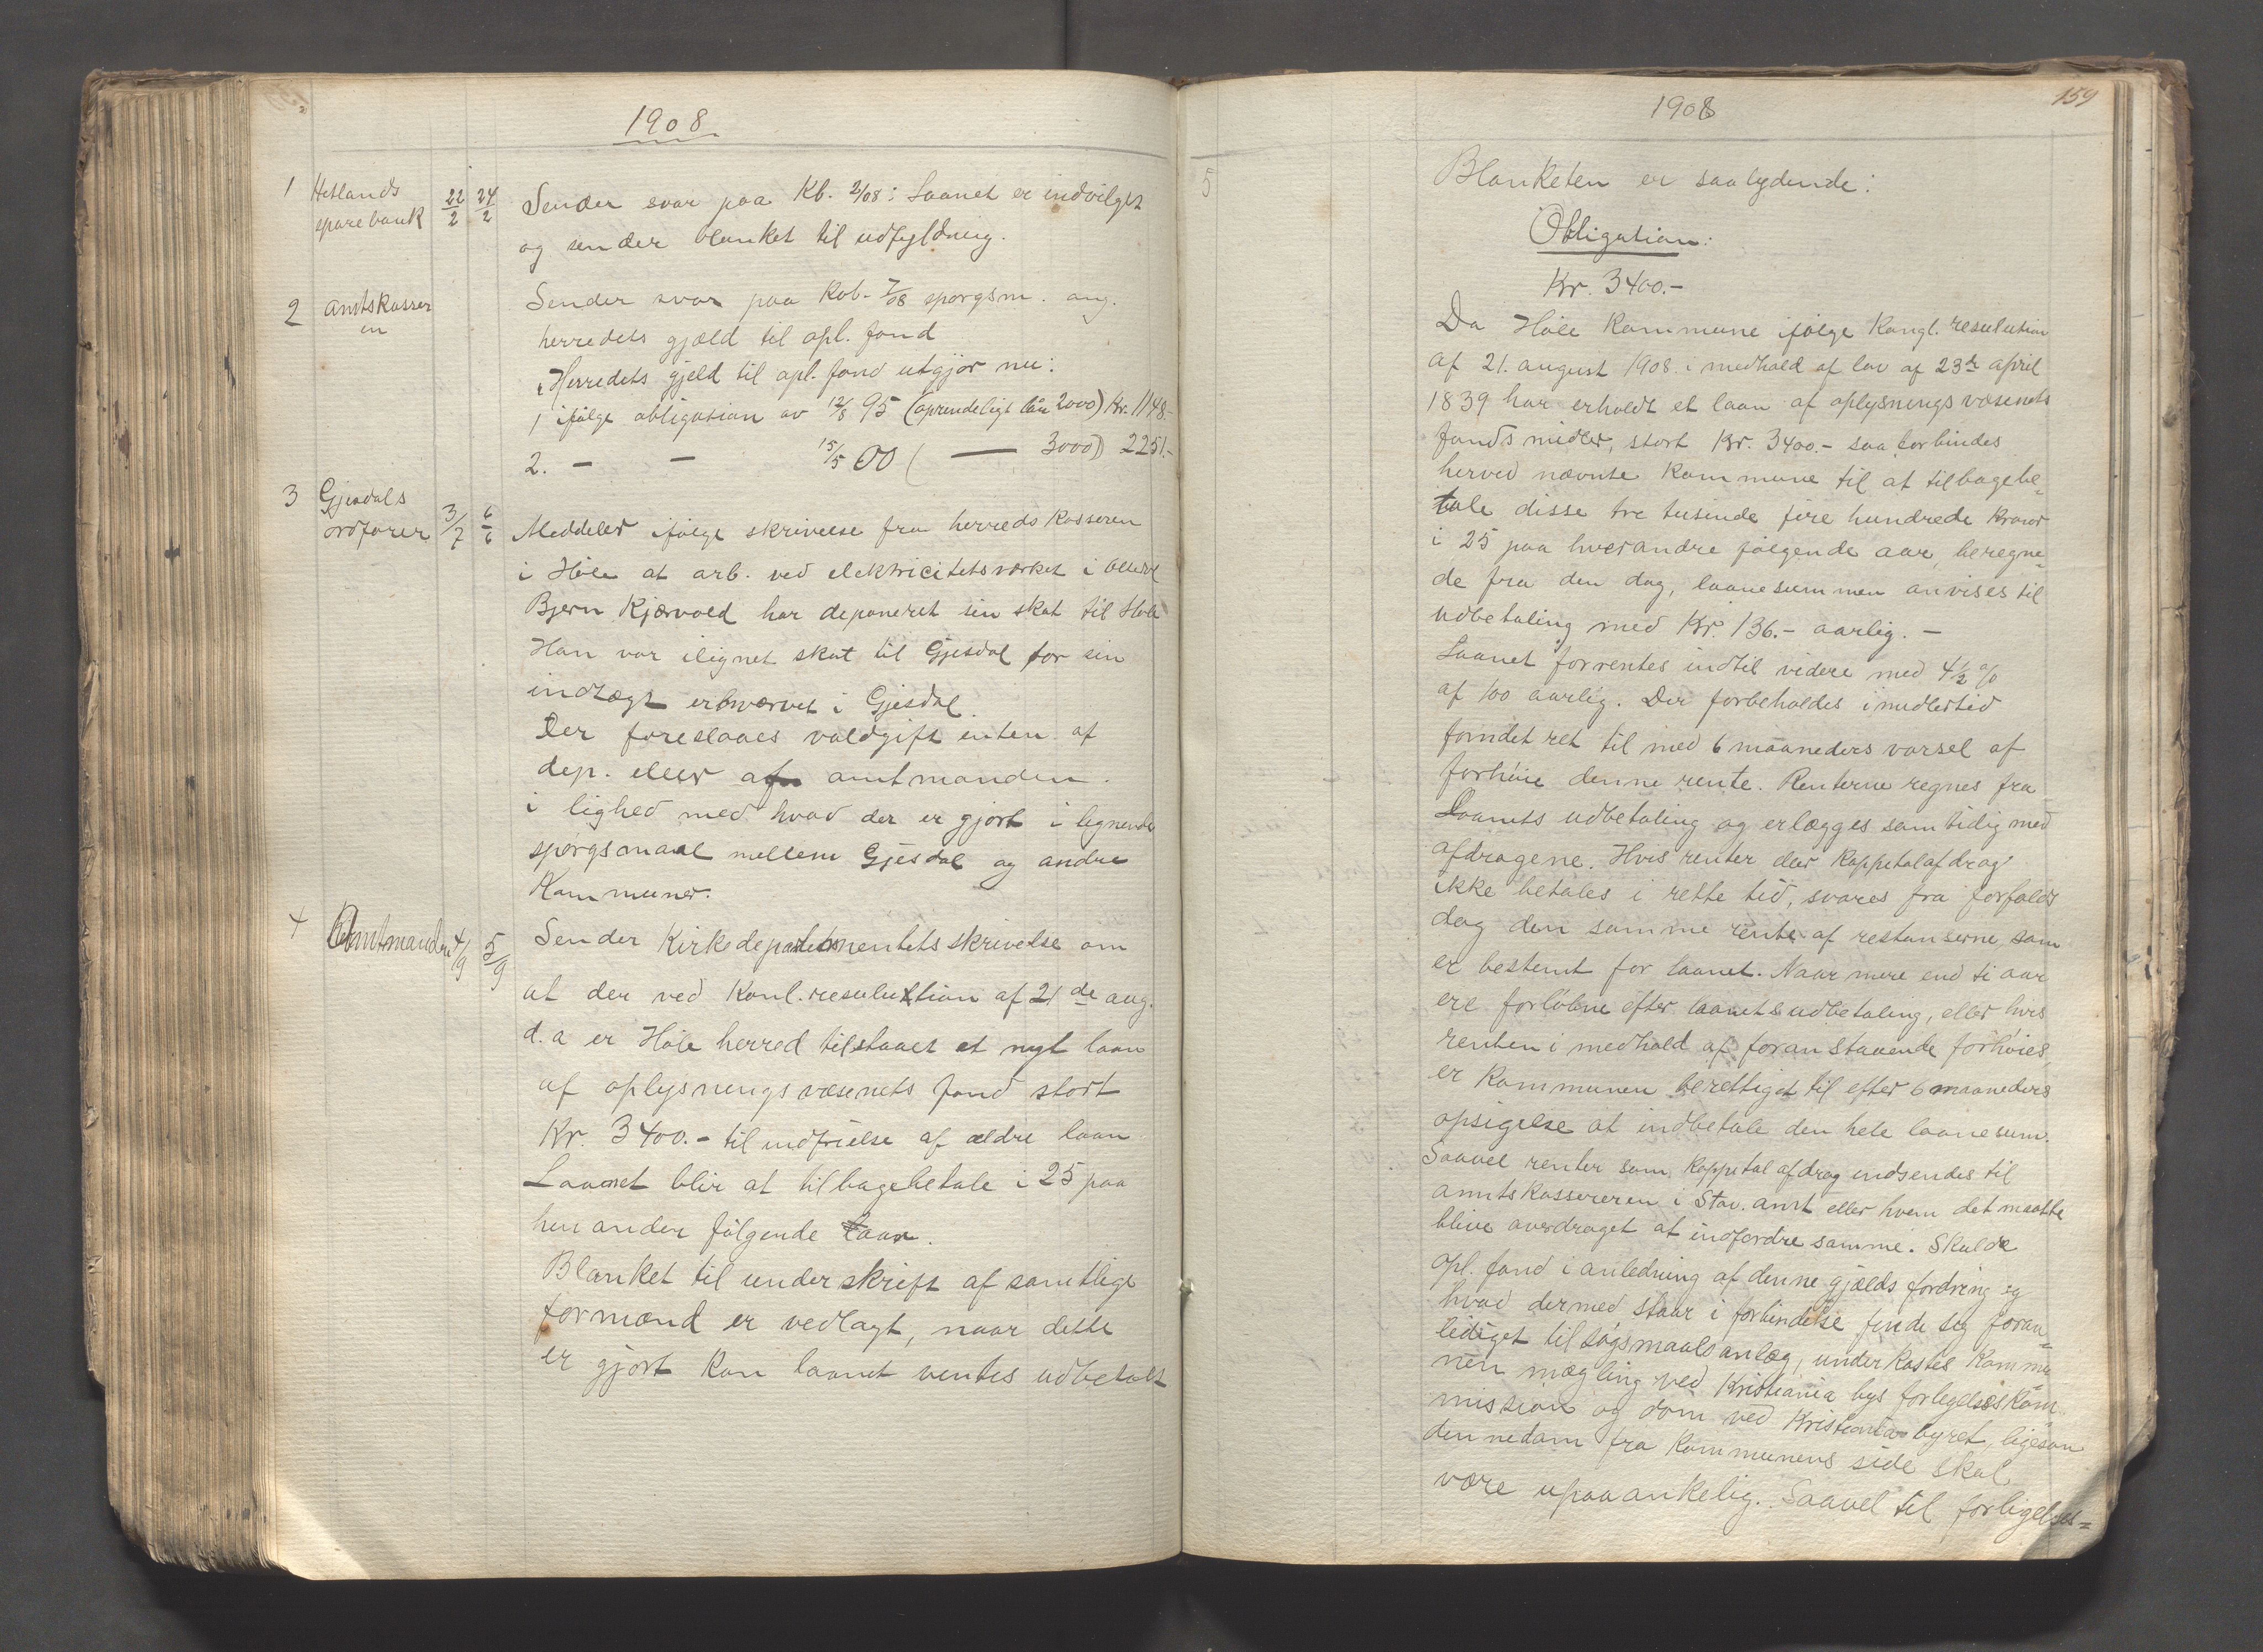 1908
1 Hetlands sparebank 22/2 24/2 Sender svar paa Kb. 2/08: Laanet er indvilget
og sender blanket til udfyldning.
2 Amtskasser
en
Sender svar paa Kob. 7/08 spørgsm. ang.
herredets gjæld til opl. fond
Herredets gjeld til opl. fond utgjør nu:
1 ifølge obligation av 12/8 95 (oprindeligt lån 2000) Kr. 1148.-
2. - - 15/5 00 ( — 3000) 2251.-
3 Gjesdals
ordfører 3/7 6/6 Meddeler ifølge skrivelse fra herredskasseren
i Høle at arb. ved elektricitetsværket i
Bjørn Kjærvold har deponeret sin skat til Høle
Han var ilignet skat til Gjesdal for sin
indtægt erhvervet i Gjesdal
Der foreslaaes voldgift enten af
dep. eller af amtmanden.
i lighed med hvad der er gjort i lignende
spørgsmaal mellem Gjesdal og andre
Kommuner.
4 Amtmanden 4/9 5/9 Sender Kirkedepartementets skrivelse om
at der ved Konl. resolution af 21de aug.
d. a er Høle herred tilstaaet et nyt laan
af oplysningsvæsenets fond stort
Kr. 3400.- til indfrielse af ældre laan
Laanet blir at tilbagebetale i 25 paa
hinanden følgende aar.
Blanket til underskrift af samtlige
formænd er vedlagt, naar dette
er gjort kan laanet ventes udbetalt
1908
159
Blanketen er saalydende:
Obligation:
Kr. 3400.-
Da Høle Kommune ifølge Kongl. resulution
af 21. august 1908 i medhold af lov af 23de april
1839 har erholdt et laan af oplysningsvæsenets
fonds midler, stort Kr. 3400.- saa forbindes
herved nævnte Kommune til at tilbagebe-
tale disse tre tusinde fire hundrede Kroner
i 25 paa hverandre følgende aar, beregne-
de fra den dag, laanesummen anvises til
udbetaling med Kr. 136.- aarlig. -
Laanet forrentes indtil videre med 4½ %
af 100 aarlig. Der forbeholdes imidlertid
fondet ret til med 6 maaneders varsel af
forhöie denne rente. Renterne regnes fra
Laanets udbetaling og erlægges samtidig med
afdragene. Hvis renter eller Kappitalafdrag
ikke betales i rette tid, svares fra forfalds
dag den samme rente af restanserne, som
er bestemt for laanet. Naar mere end ti aar
ere forløbne efter laanets udbetaling, eller hvis
renten i medhold af foranstaaende forhöies
er Kommunen berettiget til efter 6 maaneders
opsigelse at indbetale den hele laanesum.
Saavel renter som Kappital afdrag indsendes til
amtskassereren i Stav. amt eller hvem det maatte
blive overdraget at indfordre samme. Skulde
opl. fond i anledning af denne gjælds fordring og
hvad dermed staar i forbindelse finde sig foran-
lediget til søgsmaalsanlæg, underkastes Kommu
nen mægling ved Kristiania bys forligelseskom
mission og dom ved Kristiania byret, ligesom
den nedom fra Kommunens side skal
være upaaankelig. Saavel til forligelses=